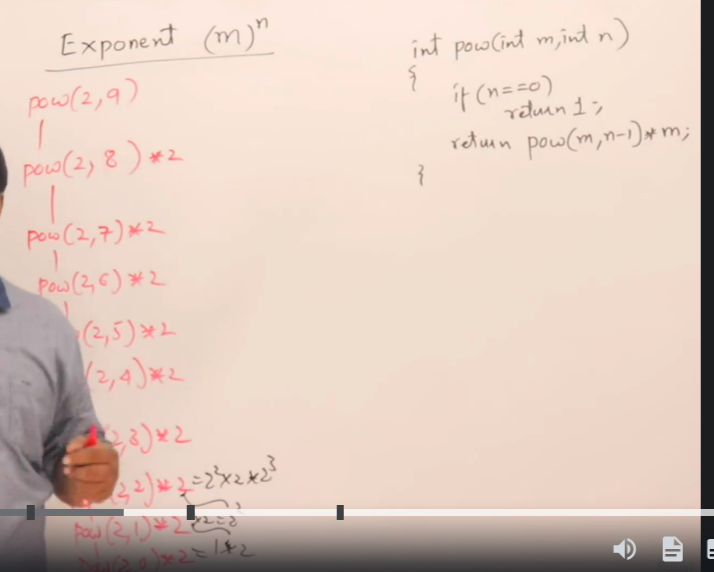 Exponent (m)^n
pow(2,9)
pow(2,8)*2
pow(2,7)*2
pow(2,6)*2
(2,5)*2
(2,4)*2
2,3)*2
,2)*2=2²×2*2³
pow(2,1)*2 ×2=2²
pow(2,0)*2=1*2
int pow(int m,int n)
{
if(n==0)
return 1;
return pow(m,n-1)*m;
}